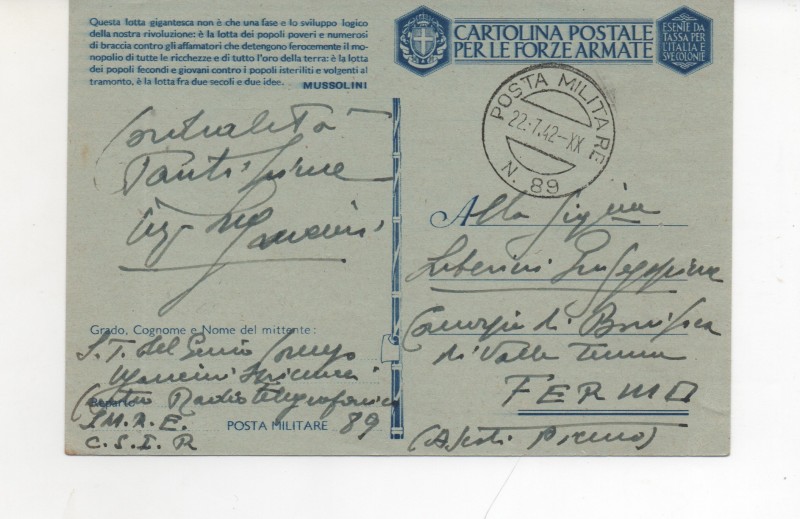 Questa lotta gigantesca non è che una fase e lo sviluppo logico
della nostra rivoluzione: è la lotta dei popoli poveri e numerosi
di braccia contro gli affamatori che detengono ferocemente il mo-
nopolio di tutte le ricchezze e di tutto l'oro della terra: è la lotta
dei popoli fecondi e giovani contro i popoli isteriliti e volgenti al
tramonto, è la lotta fra due secoli e due idee.
MUSSOLINI
CARTOLINA POSTALE
PER LE FORZE ARMATE
ESENTE DA
TASSA PER
L'ITALIA E
SVE COLONIE
POSTA MILITARE
22·7.42-XX
N. 89
Mancini
Grado, Cognome e Nome del mittente:
S.T. del Genio
Mancini
Centro Radio telegrafonico
Reparto
C.S.I.R
POSTA MILITARE 89
Alla Sig.ina
Giuseppina
di Bonifica
di Valle Tenna
FERMO
(Ascoli Piceno)